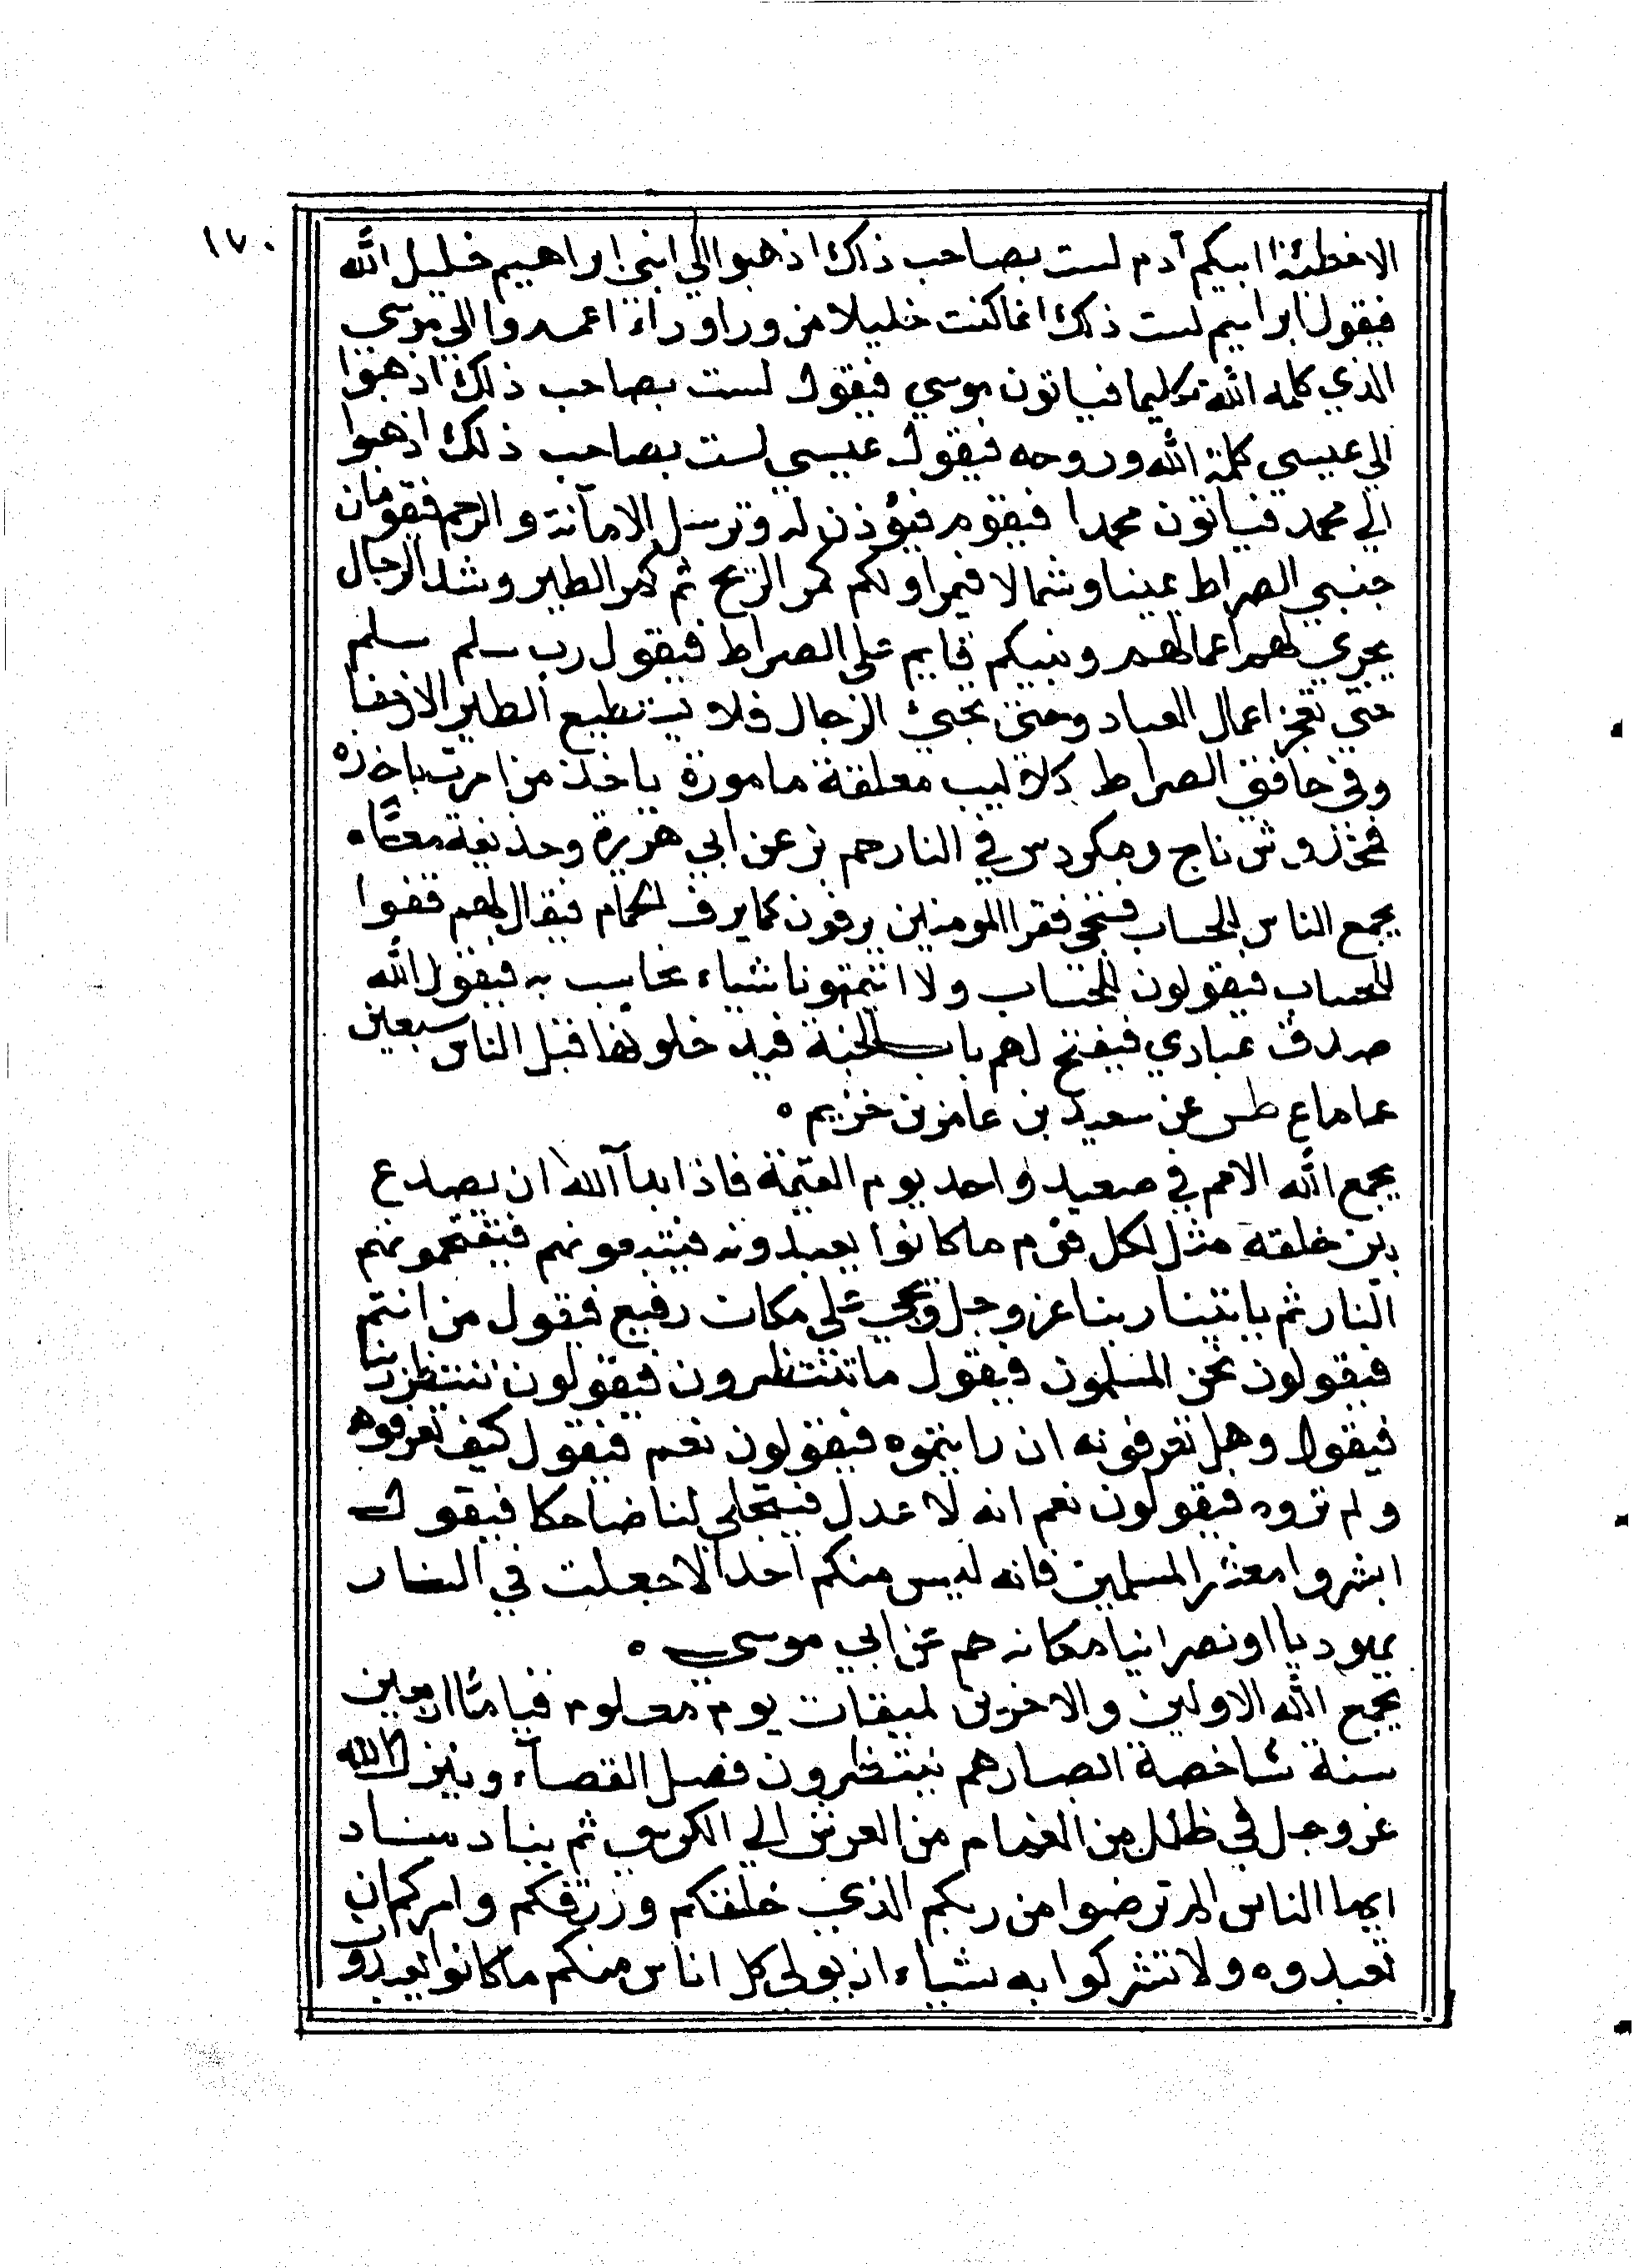 ١٧٠
الاخطئة ابيكم آدم لست بصاحب ذلك اذهبوا الي ابني ابراهيم خليل الله
فيقول ابراهيم لست ذلك انما كنت خليلا من ورا وراء اعمدوا الي موسي
الذي كلمه الله تكليما فياتون موسي فيقول لست بصاحب ذلك اذهبوا
الي عيسي كلمة الله وروحه فيقول عيسي لست بصاحب ذلك اذهبوا
الي محمد فياتون محمدا فيقوم فيؤذن له وترسل الامانة والرحم فيقومان
جنبي الصراط يمينا وشمالا فيمر اولكم كمر الريح ثم كمر الطير وشد الرجال
يجري لهم اعمالهم ونبيكم قايم علي الصراط فيقول رب سلم سلم
حتي تعجز اعمال العباد وحتي يجئ الرجال فلا يستطيع الطير الازحفا
وفي حافتي الصراط كلاليب معلقة مامورة ياخذ من امرت باخذه
فمخزوش ناج ومكودس في النار حم ز عن ابي هريرة وحذيفة معًا ه
يجمع الناس للحساب فيجي فقرا المومنين يرفون كما يرف الحمام فيقال لهم قفوا
للحساب فيقولون للحساب ولا اتيتمونا شياء يحاسب به فيقول الله
صدق عبادي فيفتح لهم باب الجنة فيدخلونها قبل الناس سبعين
عاما ع طس عن سعيد بن عامر بن خزيم ه
يجمع الله الامم في صعيد واحد يوم القيمة فاذا بدا الله ان يصدع
بين خلقه مثل لكل قوم ما كانوا يعبدونه فيتبعونهم فيقحمونهم
النار ثم ياتينا ربنا عز وجل ونحن علي مكان رفيع فيقول من انتم
فيقولون نحن المسلمون فيقول ما تنتظرون فيقولون ننتظر ربنا
فيقول وهل تعرفونه ان رايتموه فيقولون نعم فيقول كيف تعرفوه
ولم تروه فيقولون نعم انه لا عدل فيتجلي لنا ضاحكا فيقول
ابشروا معشر المسلمين فانه ليس منكم احد الا جعلت في النار
يهوديا او نصرانيا مكانه حم عن ابي موسي ه
يجمع الله الاولين والاخرين لميقات يوم معلوم قيامًا اربعين
سنة شاخصة ابصارهم ينتظرون فصل القضاء وينزل الله
عز وجل في ظلل من الغمام من العرش الي الكرسي ثم يناد مناد
ايها الناس الم ترضوا من ربكم الذي خلقكم ورزقكم وامركم ان
تعبدوه ولا تشركوا به شياء ان يولي كل اناس منكم ما كانوا يعبدو